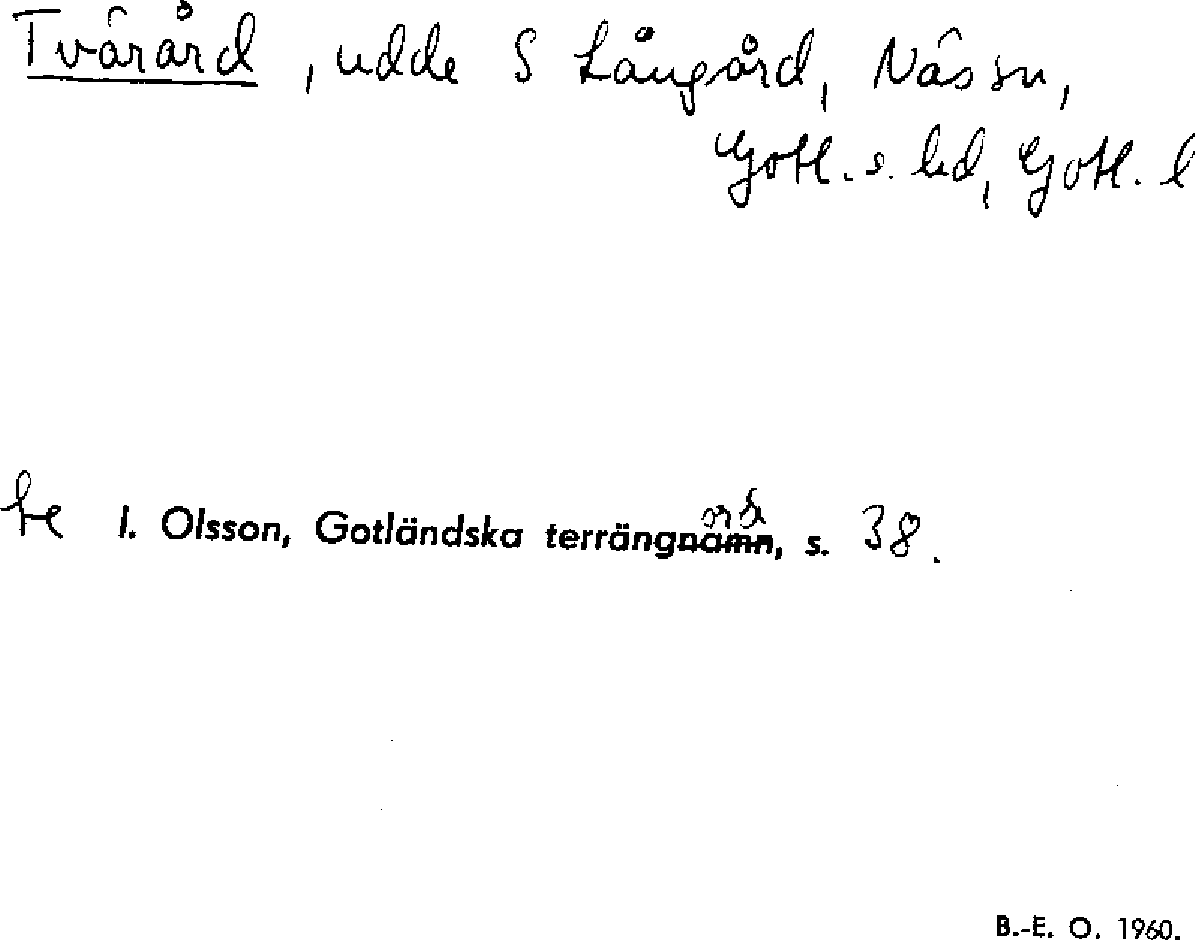 Tvärård, udde S Långård, Näs sn,
Gotl. s. hd, Gotl. l
se I. Olsson, Gotländska terrängord, s. 38.
B.-E. O. 1960.